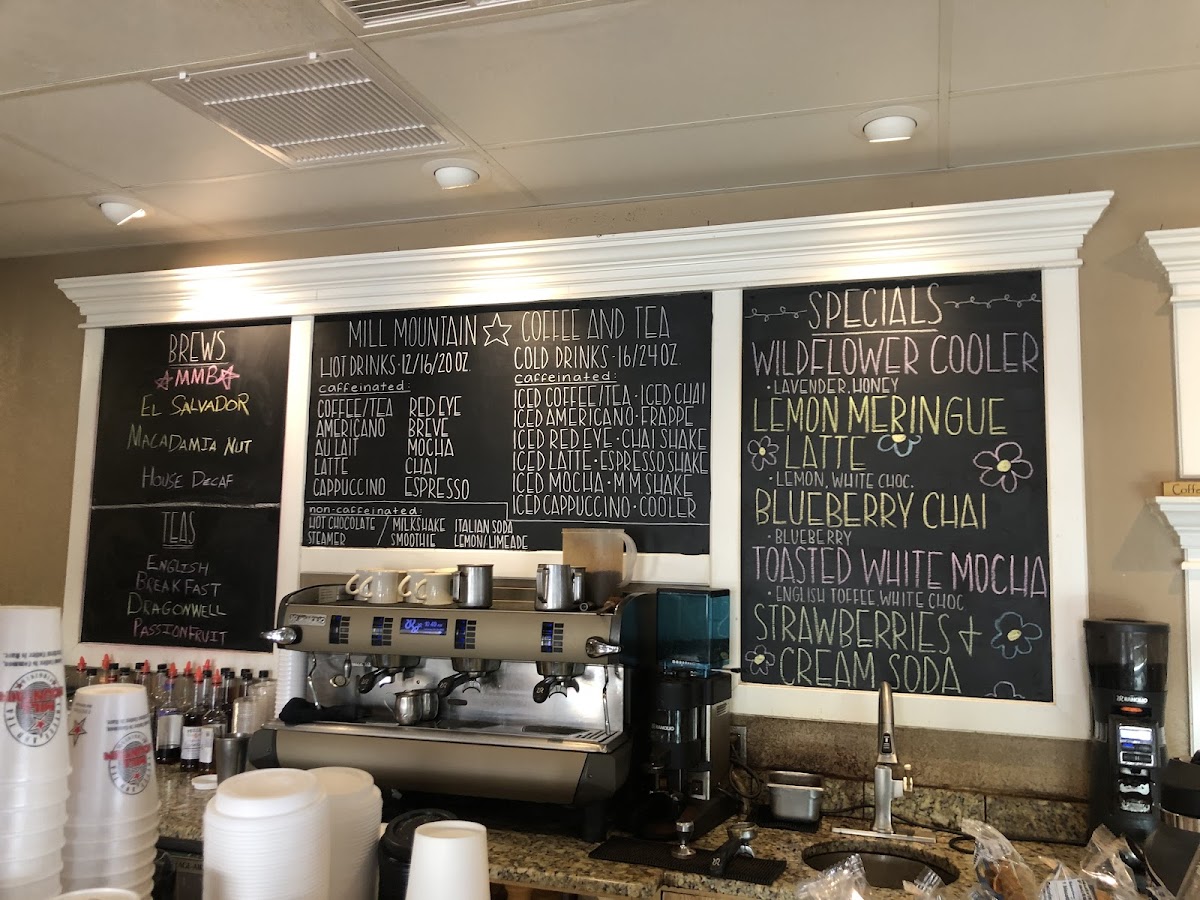 BREWS
MMB
EL SALVADOR
MACADAMIA NUT
HOUSE DECAF
TEAS
ENGLISH
BREAKFAST
DRAGONWELL
PASSIONFRUIT
MILL MOUNTAIN ☆ COFFEE AND TEA
HOT DRINKS · 12/16/20 OZ.
caffeinated:
COFFEE/TEA RED EYE
AMERICANO BREVE
AU LAIT MOCHA
LATTE CHAI
CAPPUCCINO ESPRESSO
non-caffeinated:
HOT CHOCOLATE / MILKSHAKE ITALIAN SODA
STEAMER / SMOOTHIE LEMON/LIMEADE
COLD DRINKS · 16/24 OZ.
caffeinated:
ICED COFFEE/TEA · ICED CHAI
ICED AMERICANO · FRAPPE
ICED RED EYE · CHAI SHAKE
ICED LATTE · ESPRESSO SHAKE
ICED MOCHA · M.M. SHAKE
ICED CAPPUCCINO · COOLER
SPECIALS
WILDFLOWER COOLER
· LAVENDER, HONEY
LEMON MERINGUE
LATTE
· LEMON, WHITE CHOC.
BLUEBERRY CHAI
· BLUEBERRY
TOASTED WHITE MOCHA
· ENGLISH TOFFEE, WHITE CHOC
STRAWBERRIES +
CREAM SODA
Coffe
RANCILIO